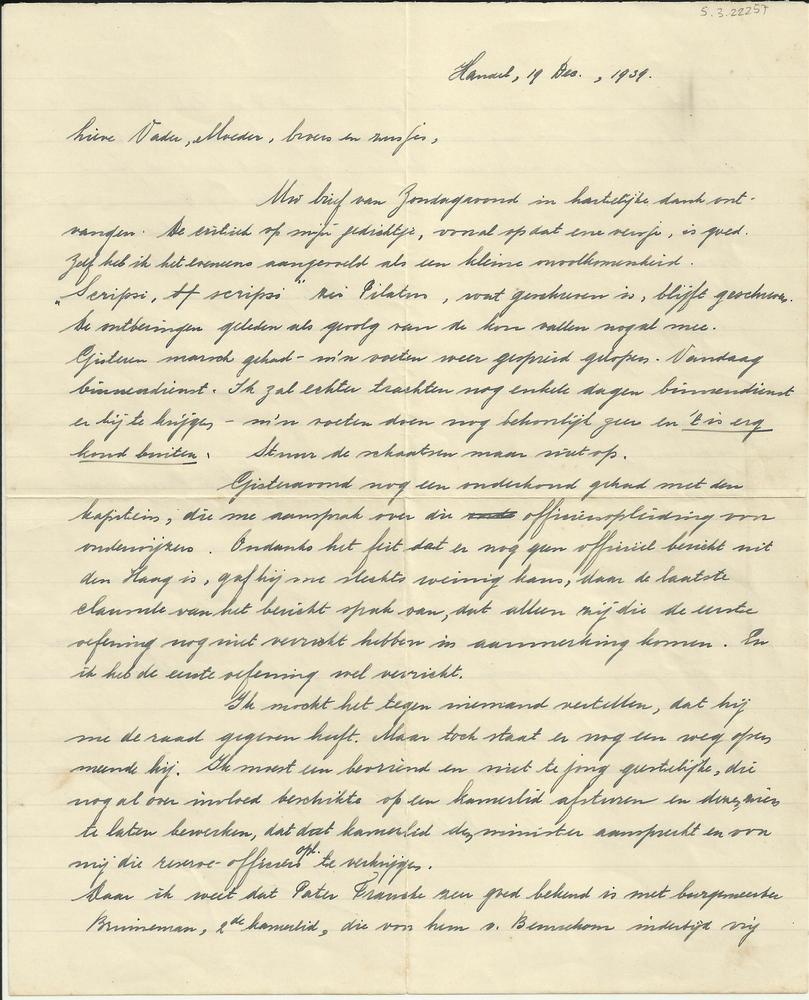 S.3.22257
Handel, 19 Dec., 1939.
Lieve Vader, Moeder, broers en zusjes,
Uw brief van Zondagavond in hartelijke dank ont-
vangen. De critiek op mijn gedichtje, vooral op dat eene versje, is goed.
Zelf heb ik het eveneens aangevoeld als een kleine onvolkomenheid.
„Scripsi, scripsi" zei Pilatus, wat geschreven is, blijft geschreven.
De ontberingen geleden als gevolg van de kou vallen nogal mee.
Gisteren marsch gehad – m'n voeten weer gespreid gelopen. Vandaag
binnendienst. Ik zal echter trachten nog enkele dagen binnendienst
er bij te krijgen – m'n voeten doen nog behoorlijk zeer en 't is erg
koud buiten. Stuur de schaatsen maar niet op.
Gisteravond nog een onderhoud gehad met den
kapitein, die me aansprak over die officiersopleiding voor
onderwijzers. Ondanks het feit dat er nog geen officieel bericht uit
den Haag is, gaf hij me slechts weinig kans, daar de laatste
clausule van het bericht sprak van, dat alleen zij die de eerste
oefening nog niet verricht hebben in aanmerking komen. En
ik heb de eerste oefening wel verricht.
Ik mocht het tegen niemand vertellen, dat hij
me de raad gegeven heeft. Maar toch staat er nog een weg open
meende hij. Ik moest een bevriend en niet te jong geestelijke, die
nogal over invloed beschikte op een kamerlid afsturen en deze
te laten bewerken, dat dat kamerlid den minister aanspreekt en voor
mij die reserve-officiers opl. te verkrijgen.
Daar ik weet dat Pater Francke zeer goed bekend is met burgemeester
Bruineman, 2de kamerlid, die van hem v. Bennekom indertijd vrij